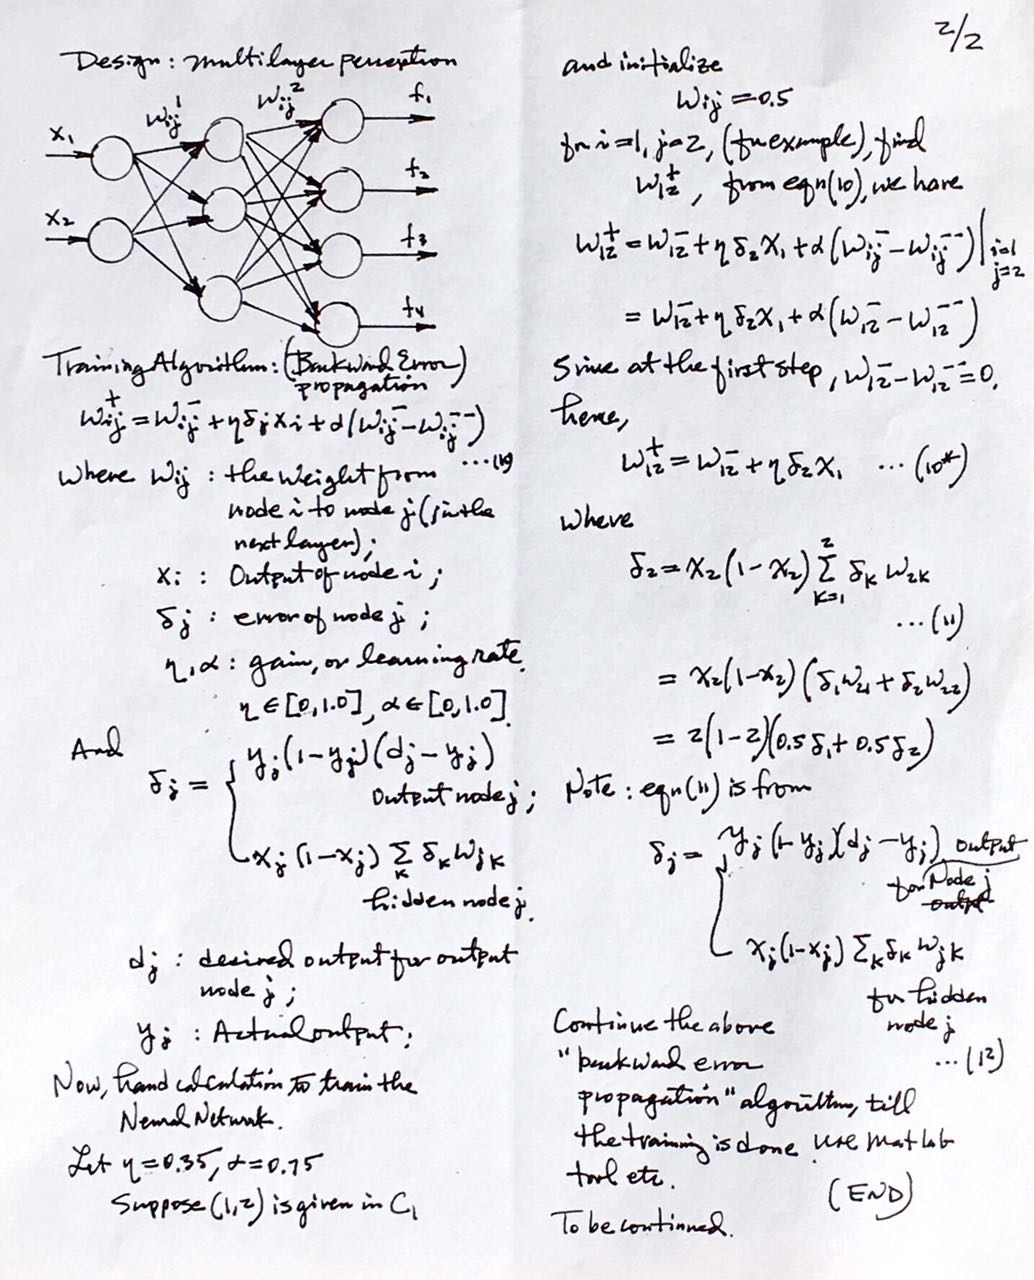 2/2
Design: multilayer perception
Wij¹ Wij² f₁
x₁
f₂
x₂
f₃
f₄
Training Algorithm: (Backward Error
propagation)
Wij⁺ = Wij⁻ + ηδjxi + α(Wij⁻ - Wij⁻⁻)
...(10)
Where Wij : the weight from
node i to node j (j in the
next layer);
xi : Output of node i;
δj : error of node j;
η, α : gain, or learning rate.
η ∈ [0,1.0], α ∈ [0,1.0].
And
δj = { yj(1-yj)(dj-yj)
Output node j;
xj(1-xj) Σk δk Wjk
hidden node j.
dj : desired output for output
node j;
yj : Actual output;
Now, hand calculation to train the
Neural Network.
Let η=0.35, α=0.75
Suppose (1,2) is given in C₁
and initialize
Wij = 0.5
for i=1, j=2, (for example), find
W₁₂⁺, from eqn(10), we have
W₁₂⁺ = W₁₂⁻ + ηδ₂x₁ + α(Wij⁻ - Wij⁻⁻)|i=1
j=2
= W₁₂⁻ + ηδ₂x₁ + α(W₁₂⁻ - W₁₂⁻⁻)
Since at the first step, W₁₂⁻ - W₁₂⁻⁻ = 0,
hence,
W₁₂⁺ = W₁₂⁻ + ηδ₂x₁ ...(10*)
where
δ₂ = x₂(1-x₂) Σ(k=1 to 2) δk W₂k
...(11)
= x₂(1-x₂)(δ₁W₂₁ + δ₂W₂₂)
= 2(1-2)(0.5δ₁ + 0.5δ₂)
Note: eqn(11) is from
δj = { yj(1-yj)(dj-yj) output
for Node j
output
xj(1-xj) Σk δk Wjk
for hidden
node j
...(12)
Continue the above
"backward error
propagation" algorithm, till
the training is done. use matlab
tool etc.
(END)
To be continued.